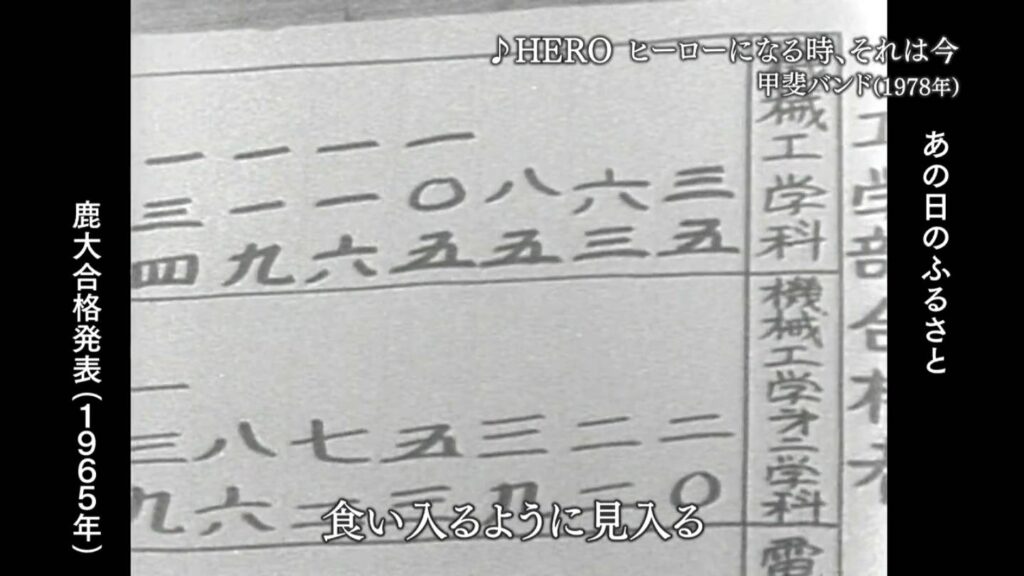 ♪HERO ヒーローになる時、それは今
甲斐バンド(1978年)
あの日のふるさと
工学部合格者
機械工学科
三五
六三
八五
一〇五
一一六
一一九
一三四
機械工学才二学科
二〇
二
三九
五
七
八六
一三九
電
食い入るように見入る
鹿大合格発表(1965年)